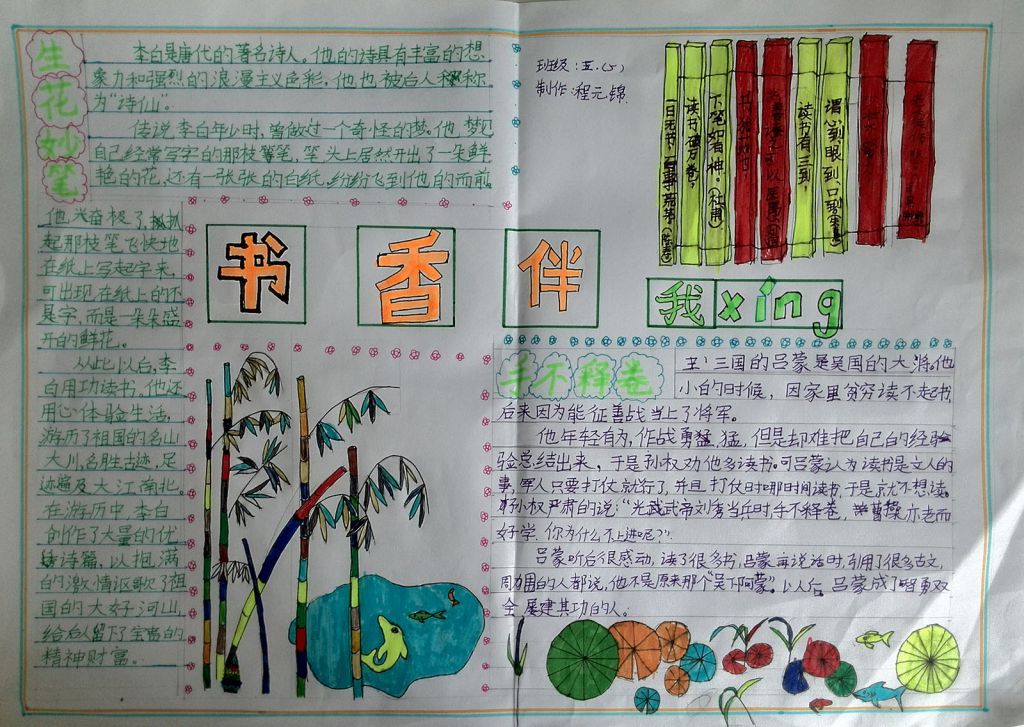 生花妙笔
李白是唐代的著名诗人。他的诗具有丰富的想
象力和强烈的浪漫主义色彩,他也被后人称
为“诗仙”。
传说李白年少时,曾做过一个奇怪的梦。他梦见
自己经常写字的那枝笔,笔头上居然开出了一朵鲜
艳的花,还有一张张的白纸,纷纷飞到他的面前。
他兴奋极了,抓
起那枝笔飞快地
在纸上写起字来,
可出现在纸上的不
是字,而是一朵朵盛
开的鲜花。
从此以后,李
白用功读书,他还
用心体验生活,
游历了祖国的名山
大川,名胜古迹,足
迹遍及大江南北。
在游历中,李白
创作了大量的优
诗篇,以抱满
的激情讴歌了祖
国的大好河山,
给后人留下了宝富的
精神财富。
班级:五.(5)
制作:程元锦
读书破万卷,
下笔如有神。(杜甫)
读书有三到,
谓心到,眼到,口到
书香伴
我xíng
手不释卷
三国的吕蒙是吴国的大将。他
小的时候,因家里贫穷读不起书,
后来因为能征善战当上了将军。
他年轻有为,作战勇猛,但是却难把自己的经验
总结出来,于是孙权劝他多读书。可吕蒙认为读书是文人的
事,军人只要打仗就行了,并且打仗时哪时间读书,于是就不想读。
孙权严肃的说:“光武帝刘秀当兵时手不释卷,曹操亦老而
好学,你为什么不上进呢?”
吕蒙听后很感动,读了很多书,吕蒙再说话时,引用了很多古文,
周围的人都说,他不是原来那个“吴下阿蒙”。以后,吕蒙成了智勇双
全,屡建其功的人。